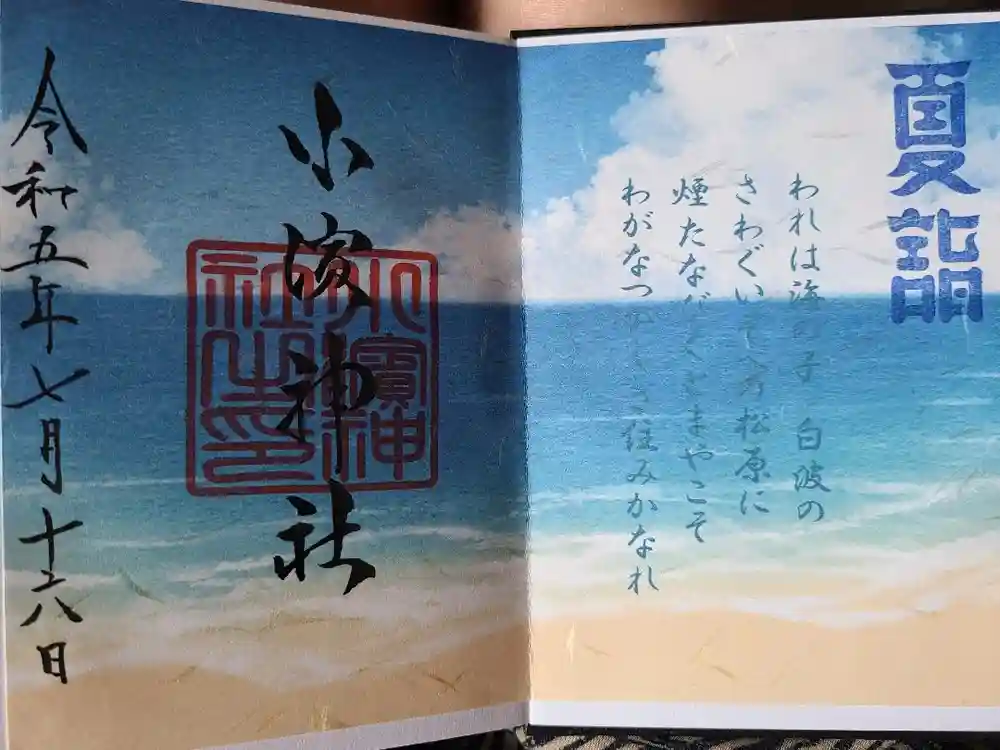 夏詣
われは海の子 白波の
さわぐいそべの松原に
煙たなびくとまやこそ
わがなつかしき住みかなれ
小濱神社
小濱神
社之印
令和五年七月十六日